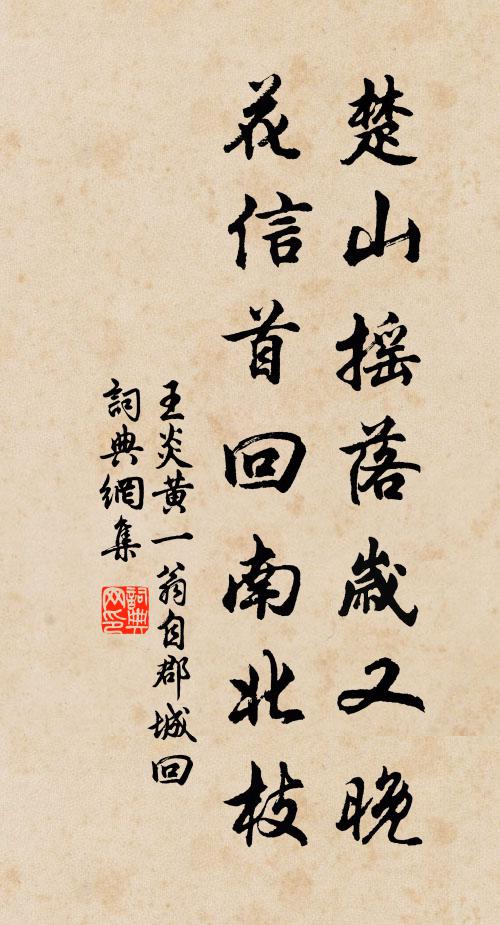 楚山摇落歲又晚
花信首回南北枝
王炎黄一翁自郡城回
詞典網集
詞典网印